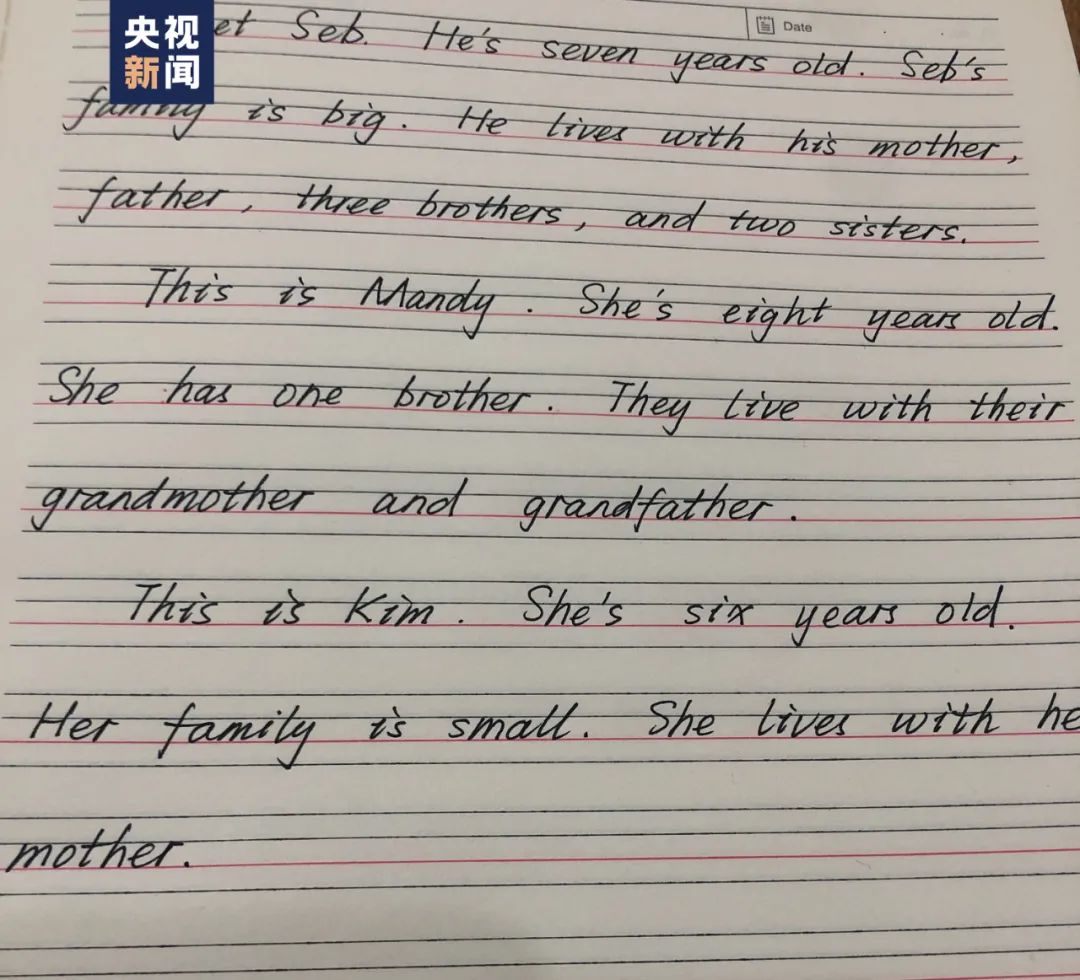 央视
新闻
Date
et Seb. He's seven years old. Seb's
family is big. He lives with his mother,
father, three brothers, and two sisters.
This is Mandy. She's eight years old.
She has one brother. They live with their
grandmother and grandfather.
This is Kim. She's six years old.
Her family is small. She lives with he
mother.